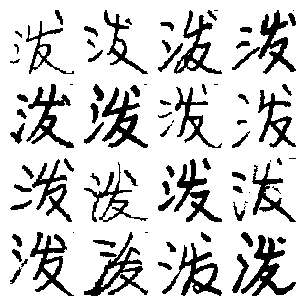 泼泼泼泼
泼泼泼泼
泼泼泼泼
泼泼泼泼